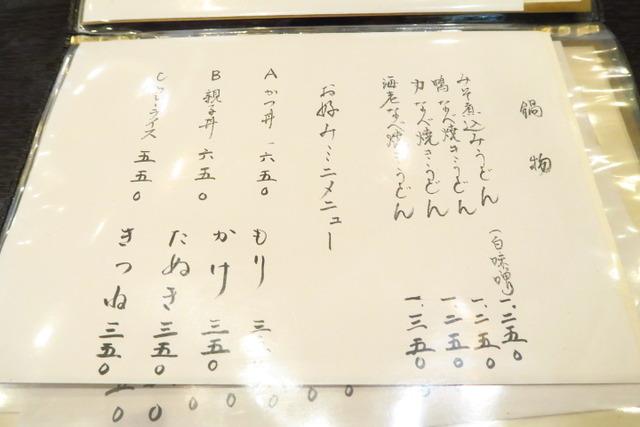 鍋物
みそ煮込みうどん（白味噌）一、二五〇
鴨なべ焼きうどん 一、二五〇
力なべ焼きうどん 一、二五〇
海老なべ焼きうどん 一、三五〇
お好みミニメニュー
A かつ丼 六五〇
B 親子丼 六五〇
C ライス 五五〇
もり 三
かけ 三五〇
たぬき 三五〇
きつね 三五〇